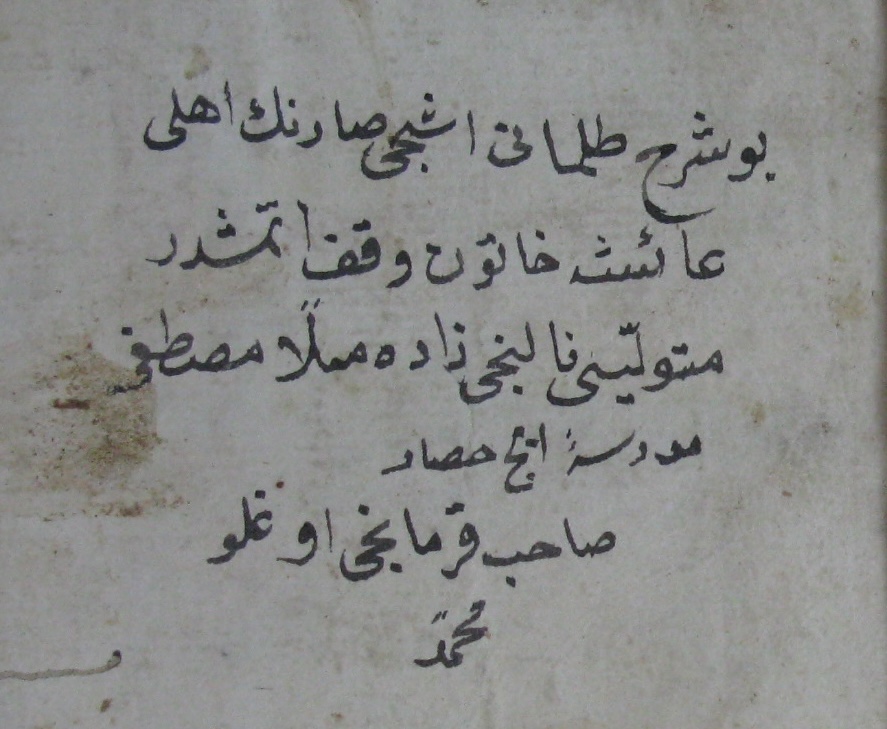 بو شرح طلماتى اشجى صارنك اهلى
عائشه خاتون وقف اتمشدر
متوليسى نالبخى زاده مملا مصطفى
مدرسهٔ ايج حصار
صاحب قرمابخى اوغلو
محمد